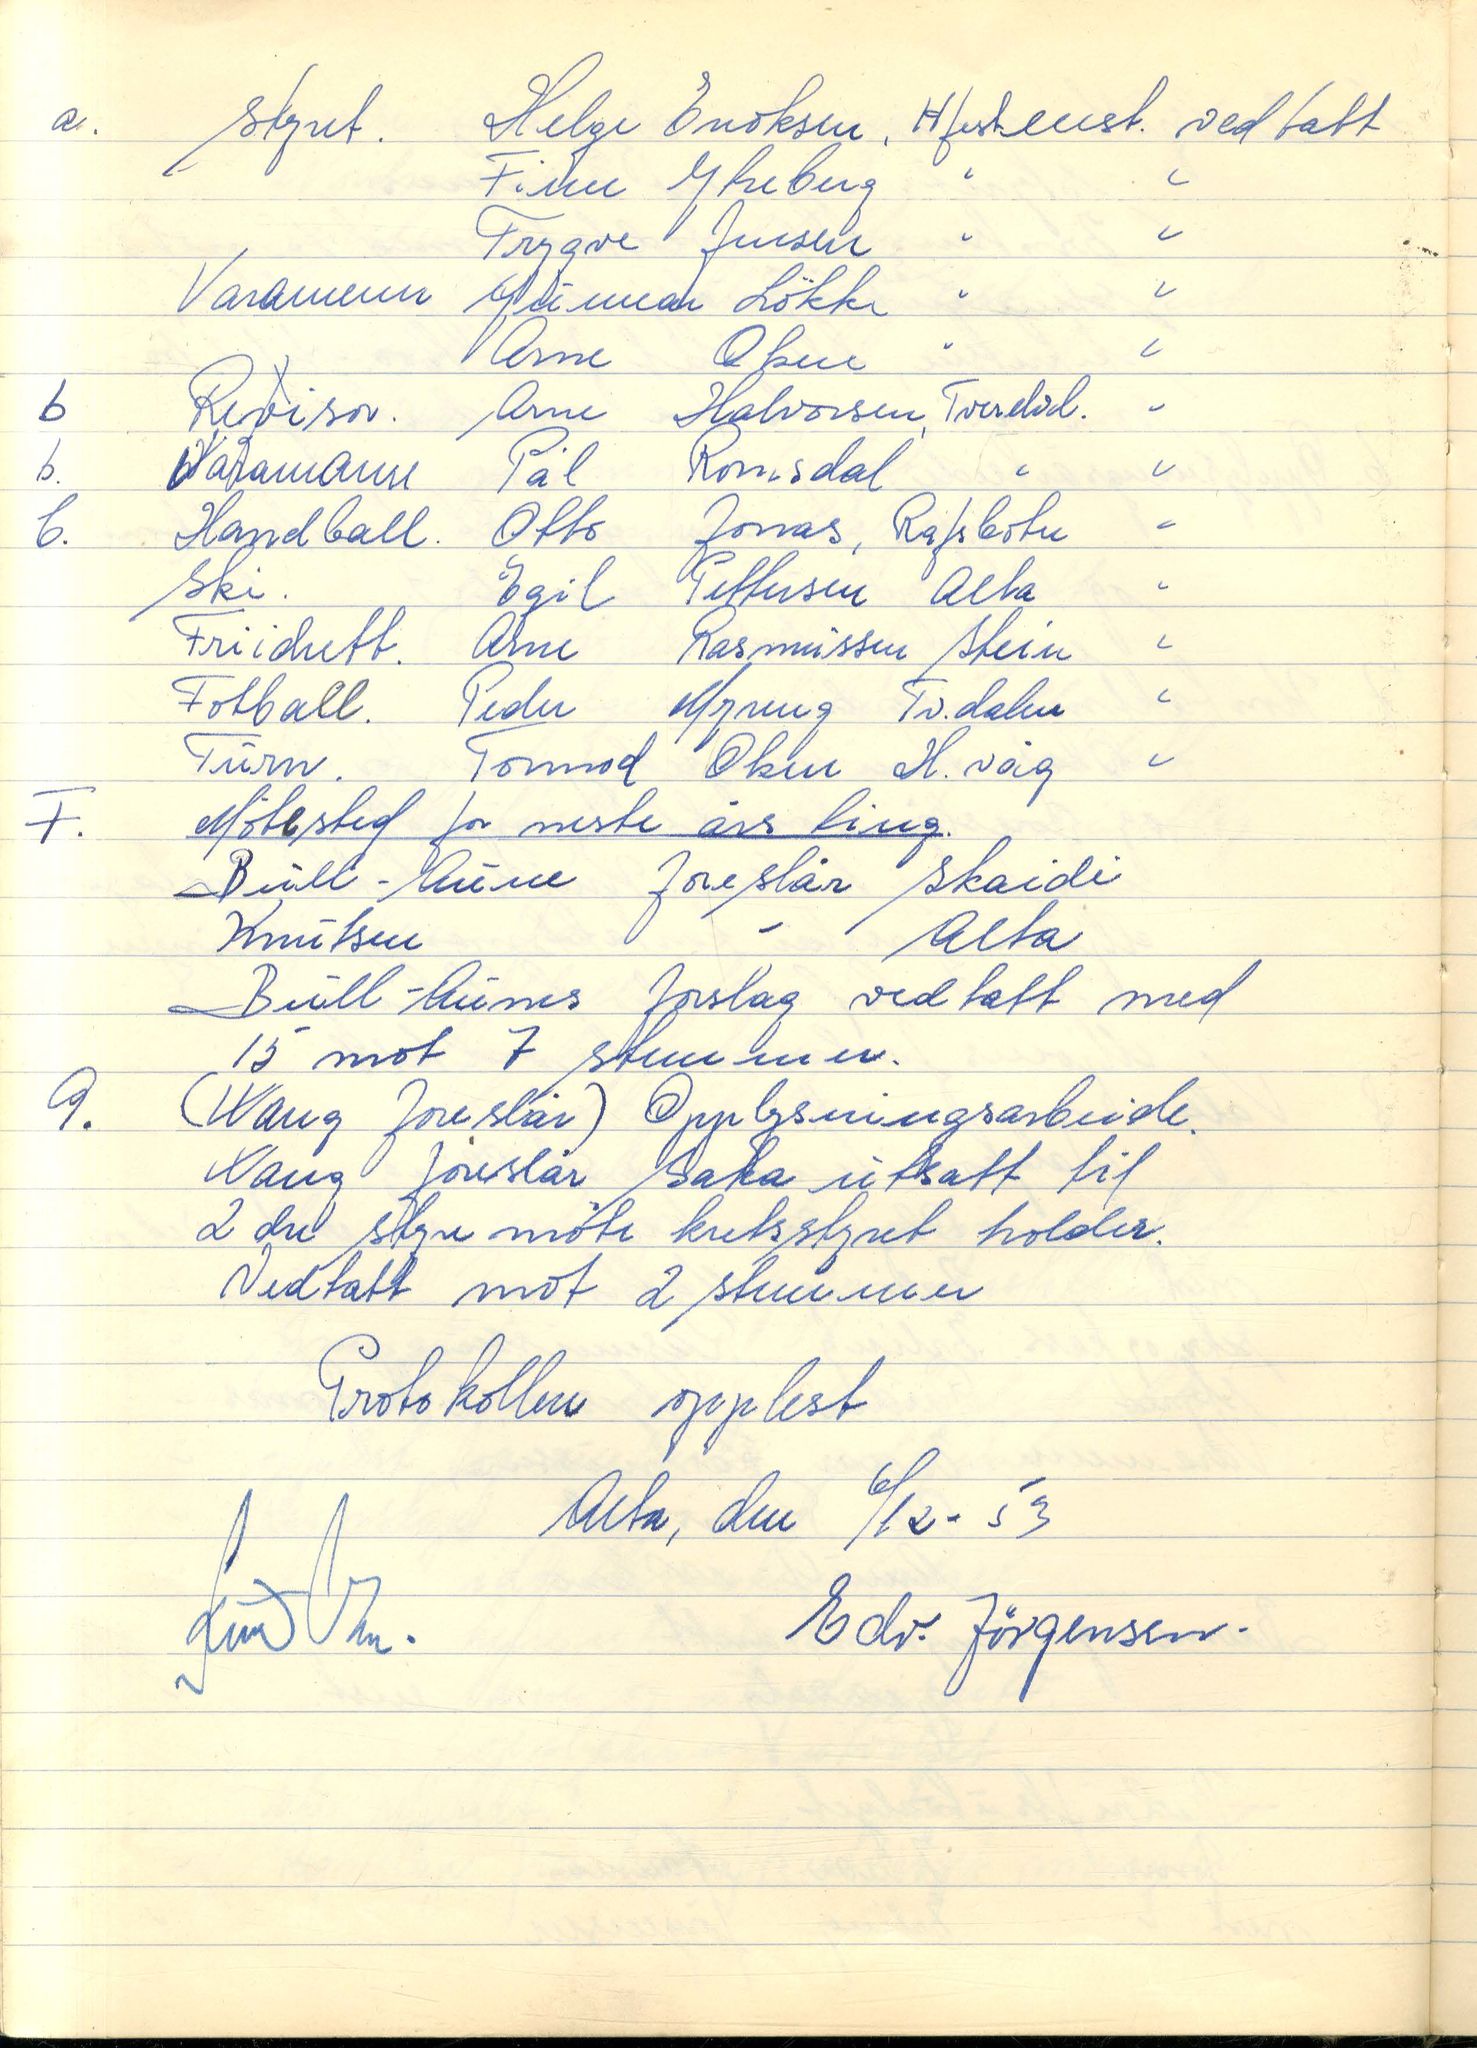 a. Styret. Helge Enoksen, H.fest enst. vedtatt
Finn Ytreberg " "
Trygve Jensen " "
Varamenn Gunnar Lökke " "
Arne Olsen " "
b Revisor. Arne Halvorsen, Tverrelvd. "
b. Varamann Pål Romsdal " "
C. Handball. Otto Jonas, Rafsbotn "
Ski. Egil Pettersen Alta "
Friidrett. Arne Rasmussen Stein "
Fotball. Peder Myreng Tv.dalen "
Turn. Tormod Olsen H.våg "
F. Mötested for neste års ting.
Bull-Aune foreslår Skaidi
Knutsen " Alta
Bull-Aunes forslag vedtatt med
15 mot 7 stemmer.
9. (Wang foreslår) Opplysningsarbeide.
Wang foreslår saka utsatt til
2 dre styremöte kretsstyret holder.
Vedtatt mot 2 stemmer
Protokollen opplest
Alta, den 6/12-53
Edv. Jörgensen.